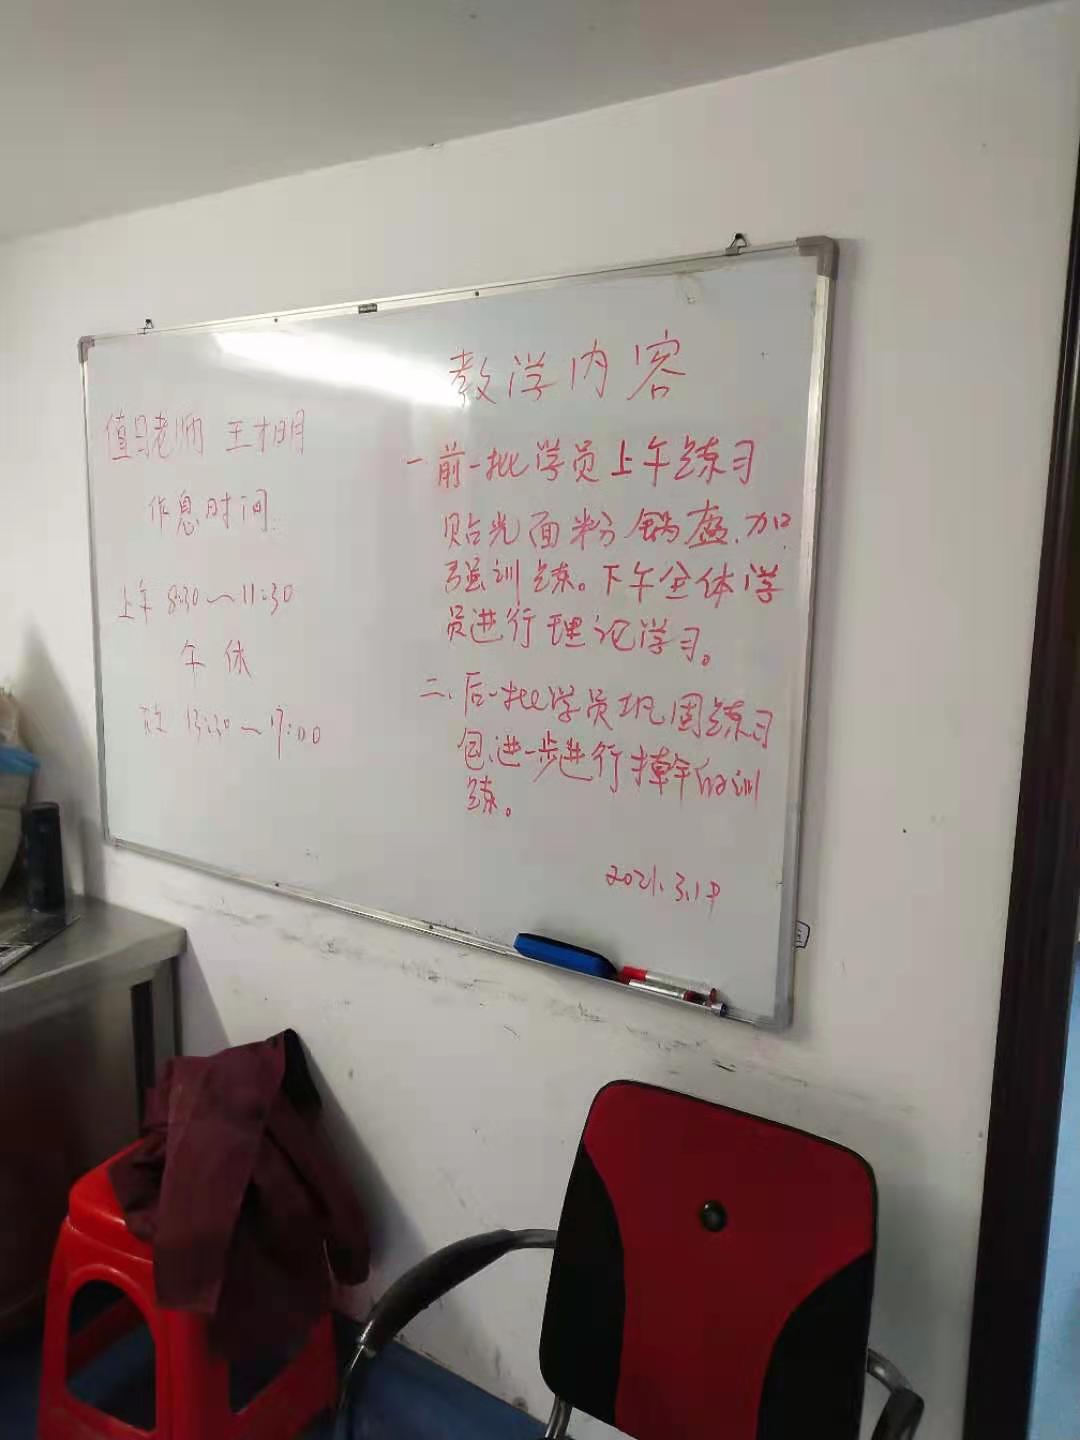 值日老师 王才明
作息时间:
上午 8:30～11:30
午休
13:30～17:00
教学内容
一.前一批学员上午练习
贴光面粉锅盔.加
强训练。下午全体学
员进行理论学习。
二、后一批学员巩固练习
包.进一步进行擀的训
练。
2021.3.